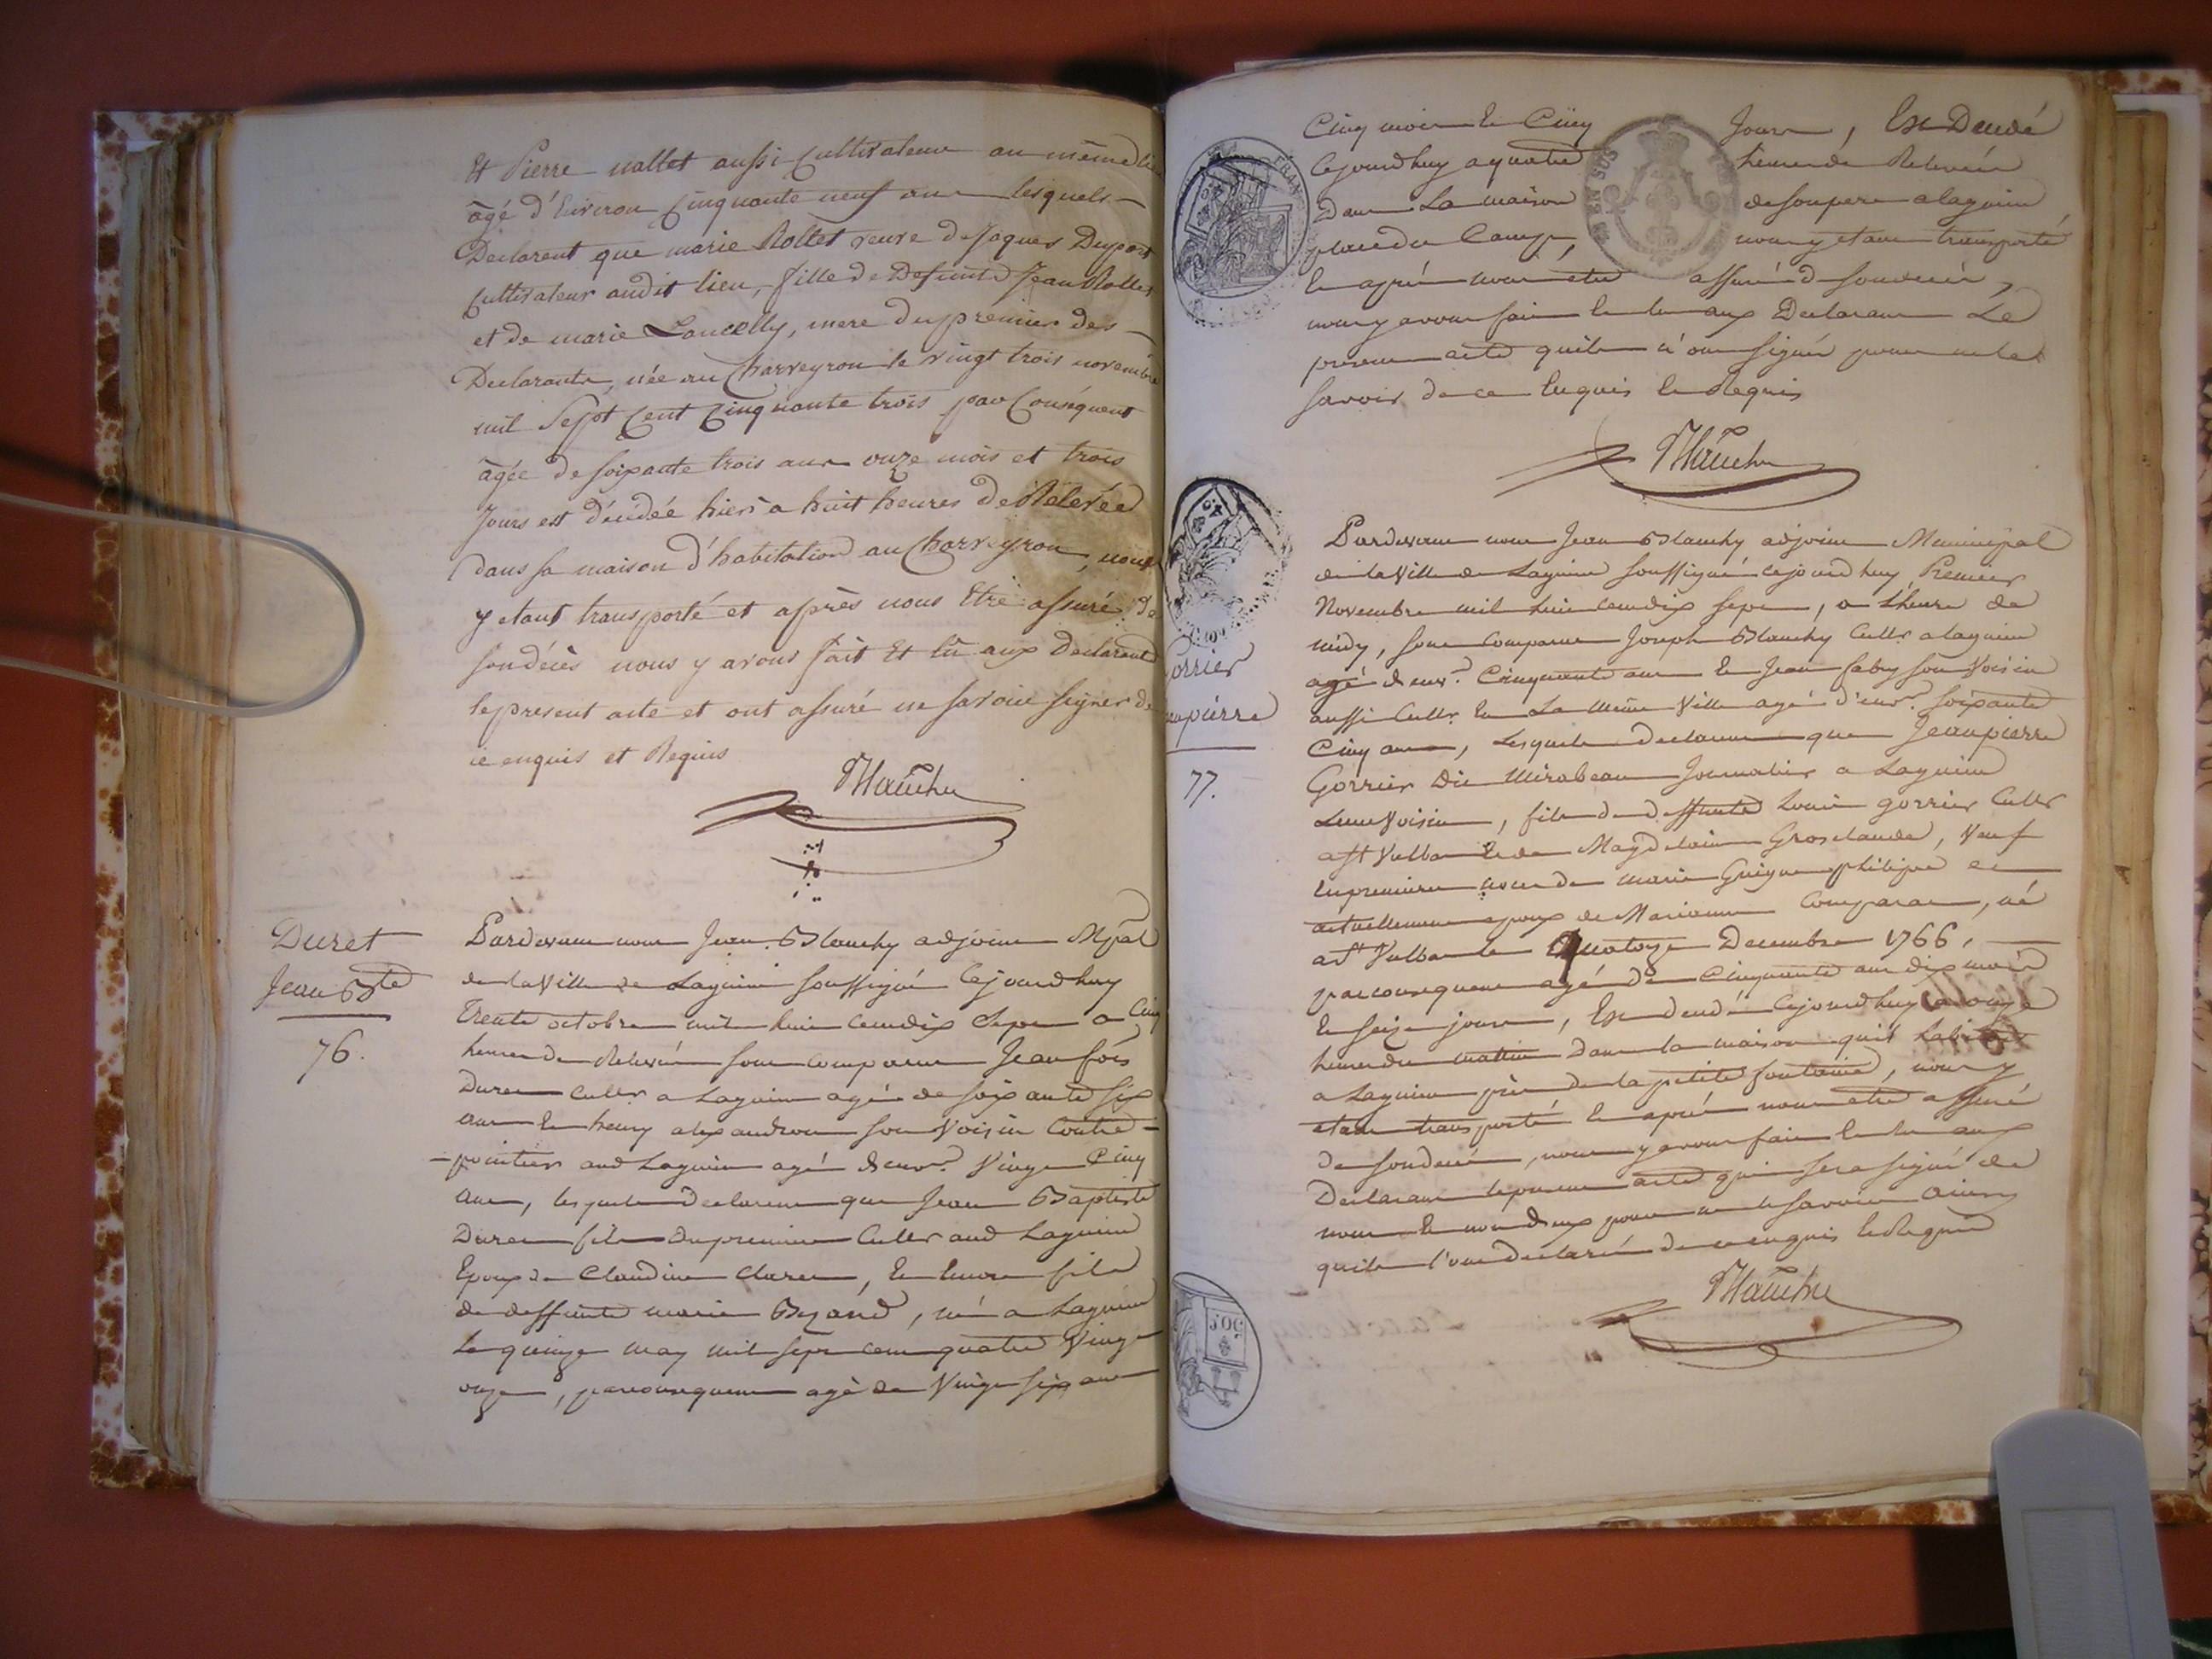 Et Pierre nallet aussi Cultivateur au même lieu
âgé d'Environ Cinquante neuf ans lesquels
Declarent que marie Rollet veuve de Jaques Duport
Cultivateur audit lieu, fille de Defunts Jean Rollet
et de marie Lancelly, mere du premier des
Declarants, née au Charveyron le vingt trois novembre
mil Sept Cent Cinquante trois par Conséquent
âgée de soixante trois ans onze mois et trois
Jours est décédée hier à huit heures De Relevée
dans sa maison d'habitation au Charveyron, nous
y etant transporté et après nous Etre assuré de
son décès nous y avons fait Et lû aux Declarants
le present acte et ont assuré ne savoir signer de
ce enquis et Requis
Blanchy
Duret
Jean Bte
76.
Pardevant nous Jean Blanchy adjoint Mpal
de la Ville de Lagnieu soussigné Cejourdhuy
Trente octobre mil huit cent dix Sept a Cinq
heures de Relevée sont comparus Jean fois
Duret Cultr a Lagnieu agé de soixante six
ans Et henry alexandron son Voisin Contre-
-pointier aud Lagnieu agé d'envon Vingt Cinq
ans, lesquels declarent que Jean Baptiste
Duret fils du premier Cultr aud Lagnieu
Epoux de Claudine Claret, Et Encore fils
de deffunte marie , né a Lagnieu
Le quinze may mil sept cent quatre Vingt
onze, par consequent agé de Vingt six ans
Cinq mois Et Cinq Jours, Est Decedé
Cejourdhuy a quatre heures de Relevée
Dans La maison de son pere a lagnieu
place du Camp, nous y etant transporté
Et après nous etre assuré de son decès,
nous y avons fait Et lu aux Declarants Le
present acte qu'ils n'ont signé pour ne le
savoir de ce Enquis Et Requis
Blanchy
Gorrier
Jeanpierre
77.
Pardevant nous Jean Blanchy adjoint Municipal
de la Ville de Lagnieu soussigné cejourdhuy Premier
Novembre mil huit cent dix sept, a L'heure de
midy, sont Comparus Joseph Blanchy Cultr a lagnieu
agé d'envon Cinquante ans Et Jean fabry son Voisin
aussi Cultr En La même Ville agé d'envon Soixante
Cinq ans, Lesquels declarent que Jeanpierre
Gorrier Dit Mirabeau Journalier a Lagnieu
Leur Voisin, fils de deffunts Louis gorrier Cultr
a St Vulbas Et de Magdelaine Grosclaude, Veuf
En premieres noces de marie Guigue philippe et
actuellement epoux de Marianne Comparat, né
a St Vulbas le Quatorze Decembre 1766,
par consequent agé de Cinquante ans dix mois
Et seize jours, Est decedé Cejourdhuy a onze
heures du mattin Dans la maison qu'il habitoit
a Lagnieu près de la petite fontaine, nous y
etant transporté Et après nous etre assuré
de son decès, nous y avons fait Et lu aux
Declarants le present acte qui sera signé de
nous Et non d'eux pour ne le savoir ainsy
qu'ils l'ont declaré de ce enquis Et Requis
Blanchy